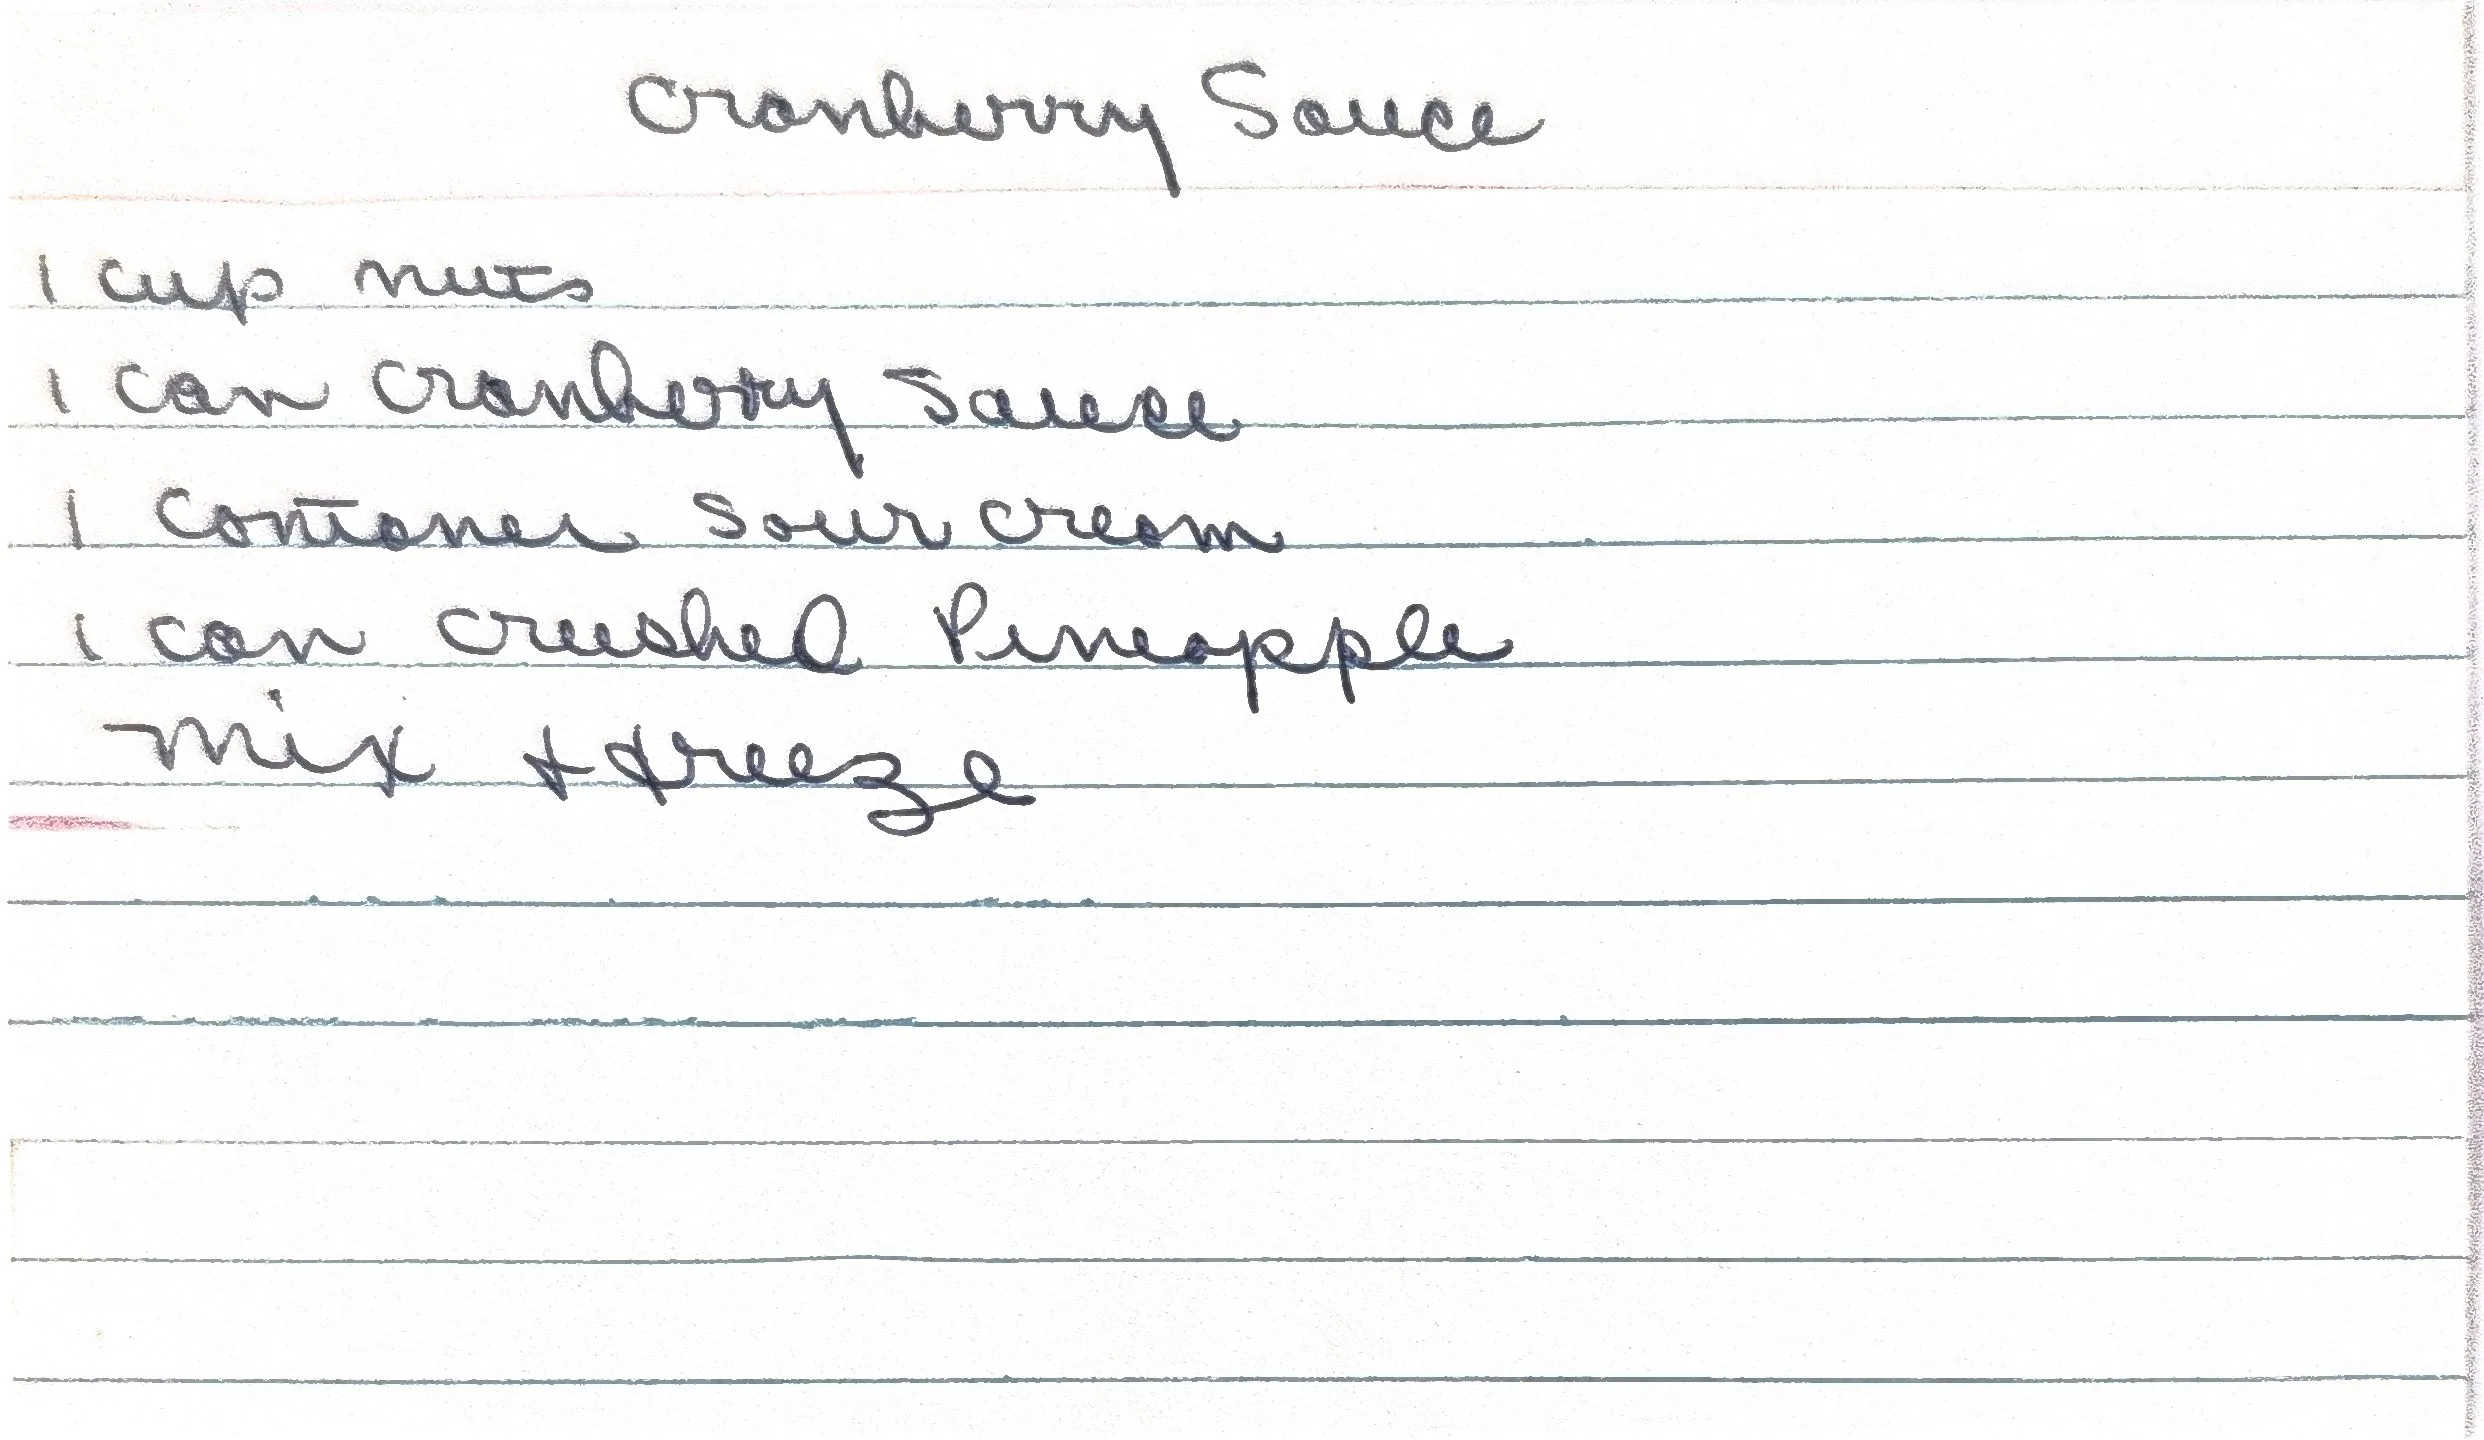 Cranberry Sauce
1 cup nuts
1 can cranberry sauce
1 Contaner sour cream
1 can crushed Pineapple
mix + freeze